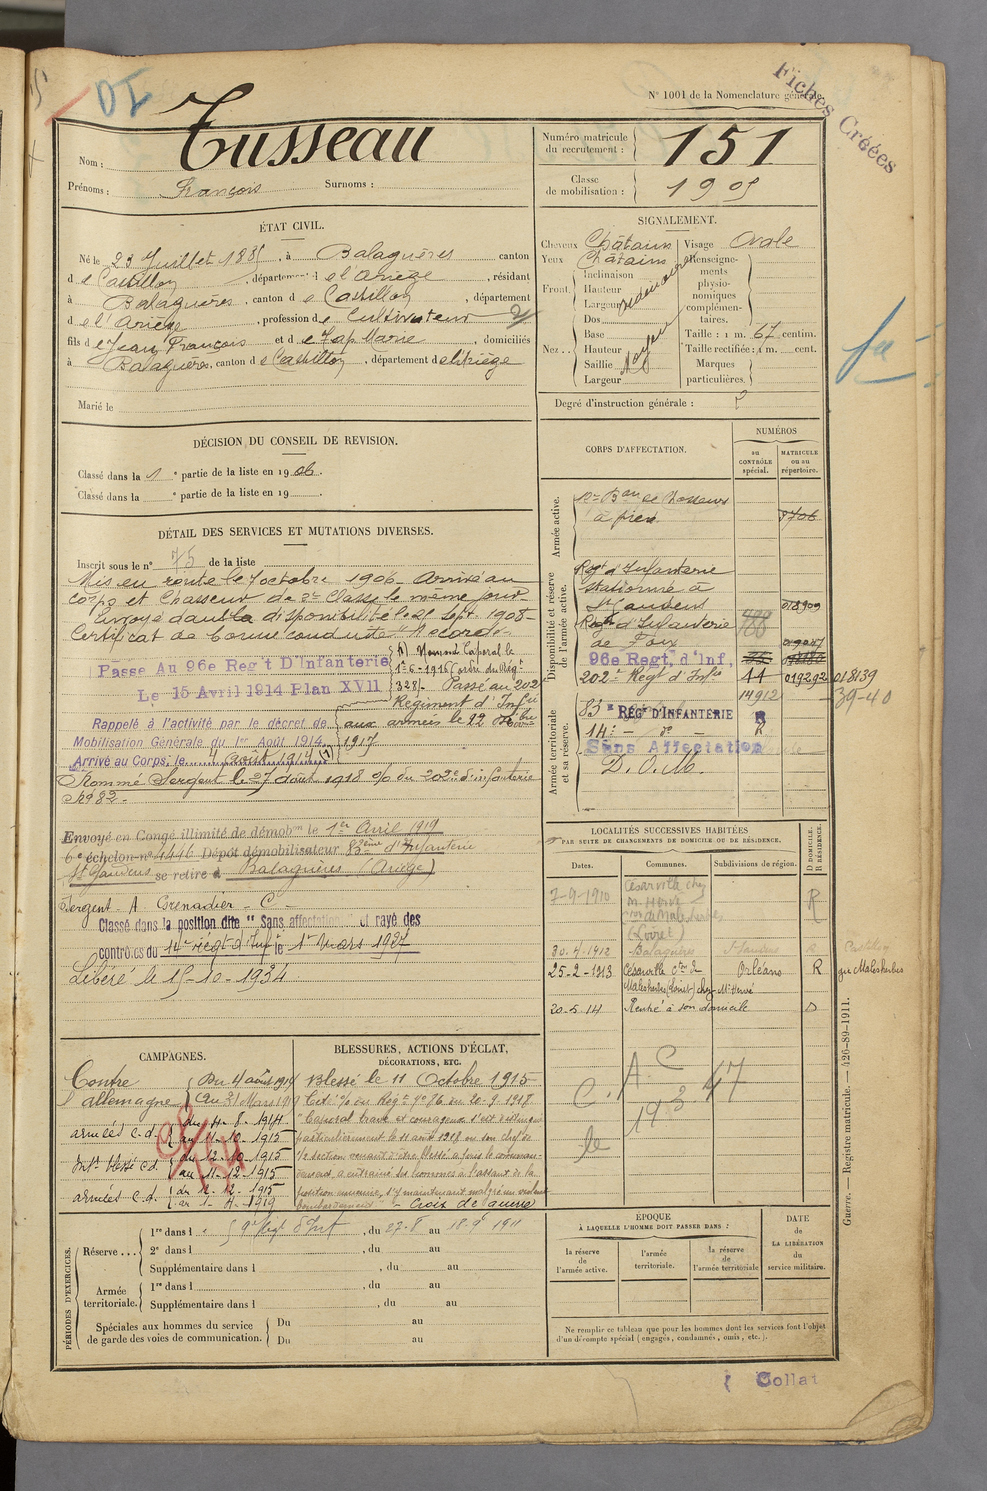 N° 1001 de la Nomenclature générale.
Fiches Créées
Nom : Tusseau
Prénoms : François Surnoms :
Numéro matricule du recrutement : 151
Classe de mobilisation : 1905
ÉTAT CIVIL.
Né le 23 Juillet 1885, à Balaguères canton
de Castillon, département de l'Ariège, résidant
à Balaguères, canton de Castillon, département
de l'Ariège, profession de Cultivateur
fils de Jean François et de Zap Marie, domiciliés
à Balaguères, canton de Castillon, département de l'Ariège
Marié le
SIGNALEMENT.
Cheveux Châtains
Yeux Châtains
Front. Inclinaison
Hauteur
Largeur
Nez. Dos
Base
Hauteur
Saillie
Largeur
Moyen
Visage Ovale
Renseignements physionomiques complémentaires.
Taille : 1 m. 67 centim.
Taille rectifiée : 1 m. cent.
Marques particulières.
Degré d'instruction générale :
DÉCISION DU CONSEIL DE REVISION.
Classé dans la 1e partie de la liste en 1906.
Classé dans la e partie de la liste en 19
DÉTAIL DES SERVICES ET MUTATIONS DIVERSES.
Inscrit sous le n° 75 de la liste
Mis en route le 7 octobre 1906. Arrivé au
corps et Chasseur de 2e Classe le même jour.
Envoyé dans la disponibilité le 25 sept. 1908.
Certificat de bonne conduite "Accordé"
Passe Au 96e Reg't D'Infanterie
Le 15 Avril 1914 Plan XVII
(1) Nommé Caporal le
1er-6-1916 (ordre du Régt
328). Passé au 202e
Régiment d'Infie
aux armées le 22
1917
Rappelé à l'activité par le décret de
Mobilisation Générale du 1er Août 1914.
Arrivé au Corps, le 4 août 1914 (1)
Nommé Sergent le 27 Août 1918 % du 202e d'infanterie
N° 82.
Envoyé en Congé illimité de démobon le 1er Avril 1919
6e échelon n° 4446 Dépôt démobilisateur 83ème d'Infanterie
St Gaudens se retire à Balaguères (Ariège)
Sergent - A Grenadier - C -
Classé dans la position dite "Sans affectation" et rayé des
contrôles du 14e régt d'Inf le 1er Mars 1927
Libéré le 15-10-1934
CORPS D'AFFECTATION.
NUMÉROS
au CONTRÔLE spécial.
MATRICULE ou au répertoire.
Armée active.
12e Bon de Chasseurs
à pied 3706
Disponibilité et réserve de l'armée active.
Regt d'Infanterie
stationné à
St Gaudens 018909
Regt d'Infanterie
de Foix
96e Regt. d'Inf.
202e Regt d'Infie 44 019292 018139
14912 39-40
Armée territoriale et sa réserve.
83e RÉGT D'INFANTERIE R
14e - do - R
Sans Affectation
D. O. M.
LOCALITÉS SUCCESSIVES HABITÉES
PAR SUITE DE CHANGEMENTS DE DOMICILE OU DE RÉSIDENCE.
Dates. Communes. Subdivisions de région. D DOMICILE. R RÉSIDENCE.
7-9-1910 Césarville chez
M. Hervé
con de Malesherbes
(Loiret) R
30-4-1912 Balaguères St Gaudens
25-2-1913 Césarville con de Orléans R gie Malesherbes
Malesherbes (Loiret) chez M. Hervé
20-5-14 Rentré à son domicile D
A C
C. 193 47
le
CAMPAGNES.
Contre l'allemagne
Du 4 août 1914
Au 31 Mars 1919
armées C.d. du 4-8-1914
au 11-10-1915
Intr blessé C.d. du 12-10-1915
au 11-12-1915
armées C.d. du 12-12-1915
au 1-4-1919
BLESSURES, ACTIONS D'ÉCLAT, DÉCORATIONS, ETC.
Blessé le 11 Octobre 1915
Cité % du Régt n° 86 du 20-9-1918
"Caporal brave et courageux s'est distingué
particulièrement le 11 août 1918 où son chef de
1/2 section venant d'être blessé a pris le comman-
dement, a entrainé ses hommes à l'assaut de la
position ennemie, s'y maintenant malgré un violent
bombardement" - Croix de guerre
PÉRIODES D'EXERCICES.
Réserve
1re dans l , du 22-8 au 1911
2e dans l , du au
Supplémentaire dans l , du au
Armée territoriale.
1re dans l , du au
Supplémentaire dans l , du au
Spéciales aux hommes du service de garde des voies de communication.
Du au
Du au
ÉPOQUE
À LAQUELLE L'HOMME DOIT PASSER DANS :
la réserve de l'armée active.
l'armée territoriale.
la réserve de l'armée territoriale
DATE de LA LIBÉRATION du service militaire.
Ne remplir ce tableau que pour les hommes dont les services font l'objet
d'un décompte spécial (engagés, condamnés, omis, etc.).
Guerre. — Registre matricule. — 426-89-1911.
Collat